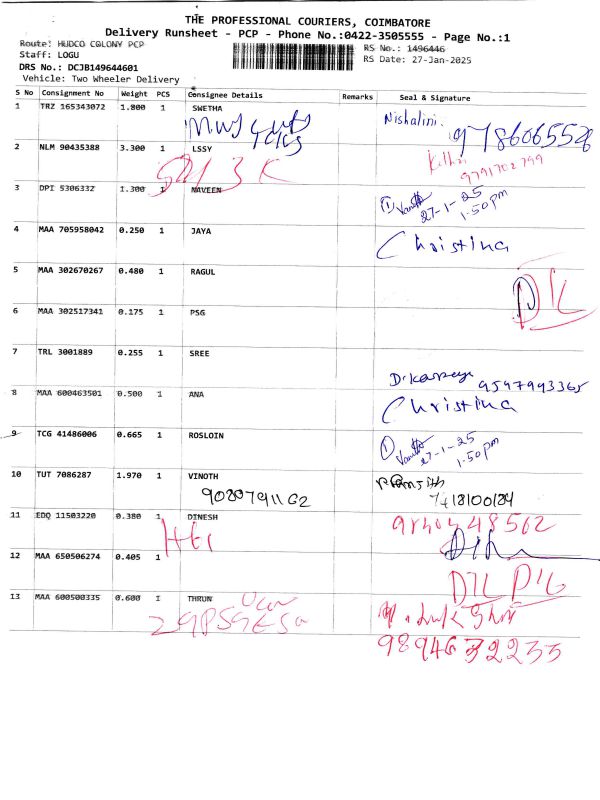 THE PROFESSIONAL COURIERS, COIMBATORE
Delivery Runsheet - PCP - Phone No.:0422-3505555 - Page No.:1
Route: HUDCO COLONY PCP
RS No.: 1496446
Staff: LOGU
RS Date: 27-Jan-2025
DRS No.: DCJB149644601
Vehicle: Two Wheeler Delivery
S No Consignment No Weight PCS Consignee Details Remarks Seal & Signature
1 TRZ 165343072 1.800 1 SWETHA
Nishalini. 9786065528
2 NLM 90435388 3.300 1 LSSY
9791702799
3 DPI 5306332 1.300 1 NAVEEN
1 27-1-25
1.50pm
4 MAA 705958042 0.250 1 JAYA Christina
5 MAA 302670267 0.480 1 RAGUL
6 MAA 302517341 0.175 1 PSG
7 TRL 3001889 0.255 1 SREE
9547993365
8 MAA 600463501 0.500 1 ANA Christina
9 TCG 41486006 0.665 1 ROSLOIN
1 27-1-25
1.50pm
10 TUT 7086287 1.970 1 VINOTH
11 EDQ 11503220 0.380 1 DINESH
12 MAA 650506274 0.405 1
13 MAA 600500335 0.600 1 THRUN
9894632233